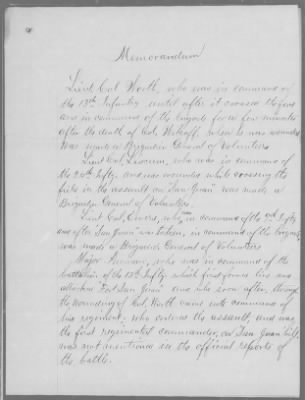 Memorandum
Lieut Col. Worth, who was in command of
the 13th Infantry until after it crossed the ford
and in command of the brigade for a few minutes
after the death of Col. Wikoff, when he was wounded
was made a Brigadier General of Volunteers
Lieut Col. Liscum, who was in command of
the 24th Infty and was wounded while crossing the
field in the assault on "San Juan" was made a
Brigadier General of Volunteers.
Lieut Col. Ewers, who in command of the 9th Infty
and after "San Juan" was taken, in command of the brigade,
was made a Brigadier General of Volunteers
Major, who was in command of the
battalion of the 13th Infty which first formed line and
attacked "Fort San Juan" and who soon after, through
the wounding of Col. Worth came into command of
his regiment, who ordered the assault, and was
the first regimental commander, on "San Juan" hill,
was not mentioned in the official reports of
the battle.